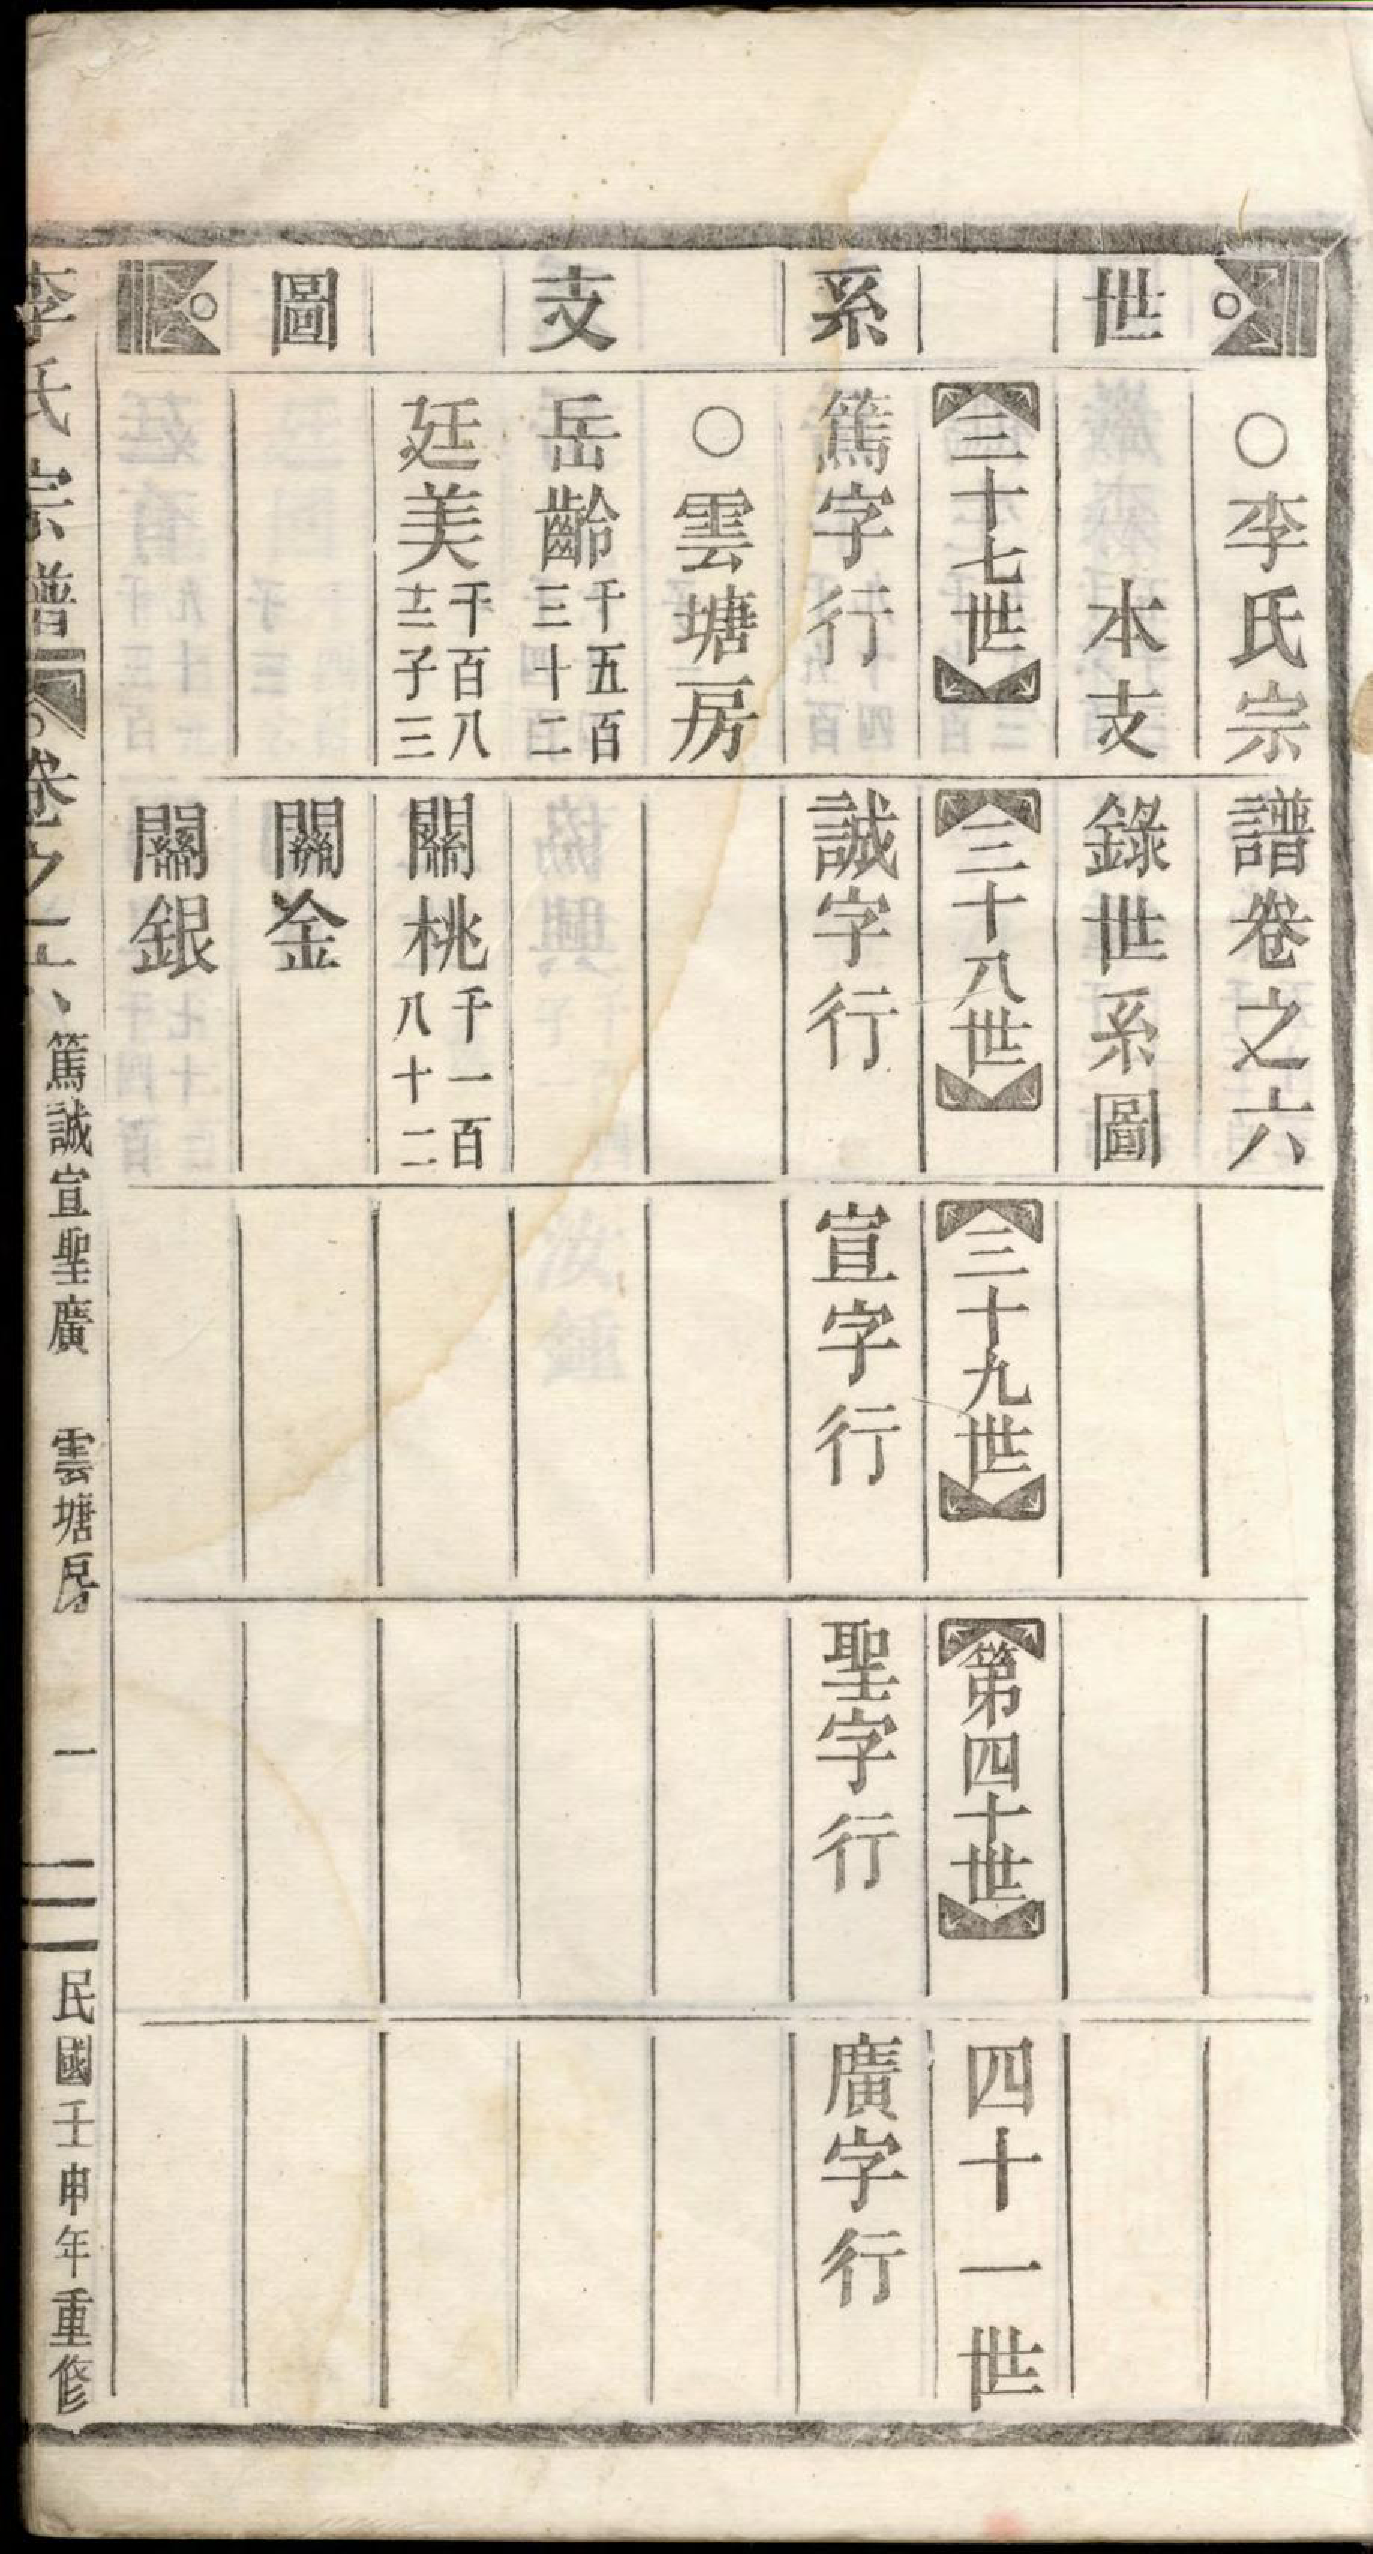 世系支圖
○李氏宗譜卷之六
本支錄世系圖
三十七世
三十八世
三十九世
第四十世
四十一世
篤字行
誠字行
宣字行
聖字行
廣字行
○雲塘房
岳齡 千五百三十二
廷美 千百八十三子三
關桃 千一百八十二
關金
關銀
李氏宗譜 卷之六 篤誠宣聖廣 雲塘房 一 民國壬申年重修